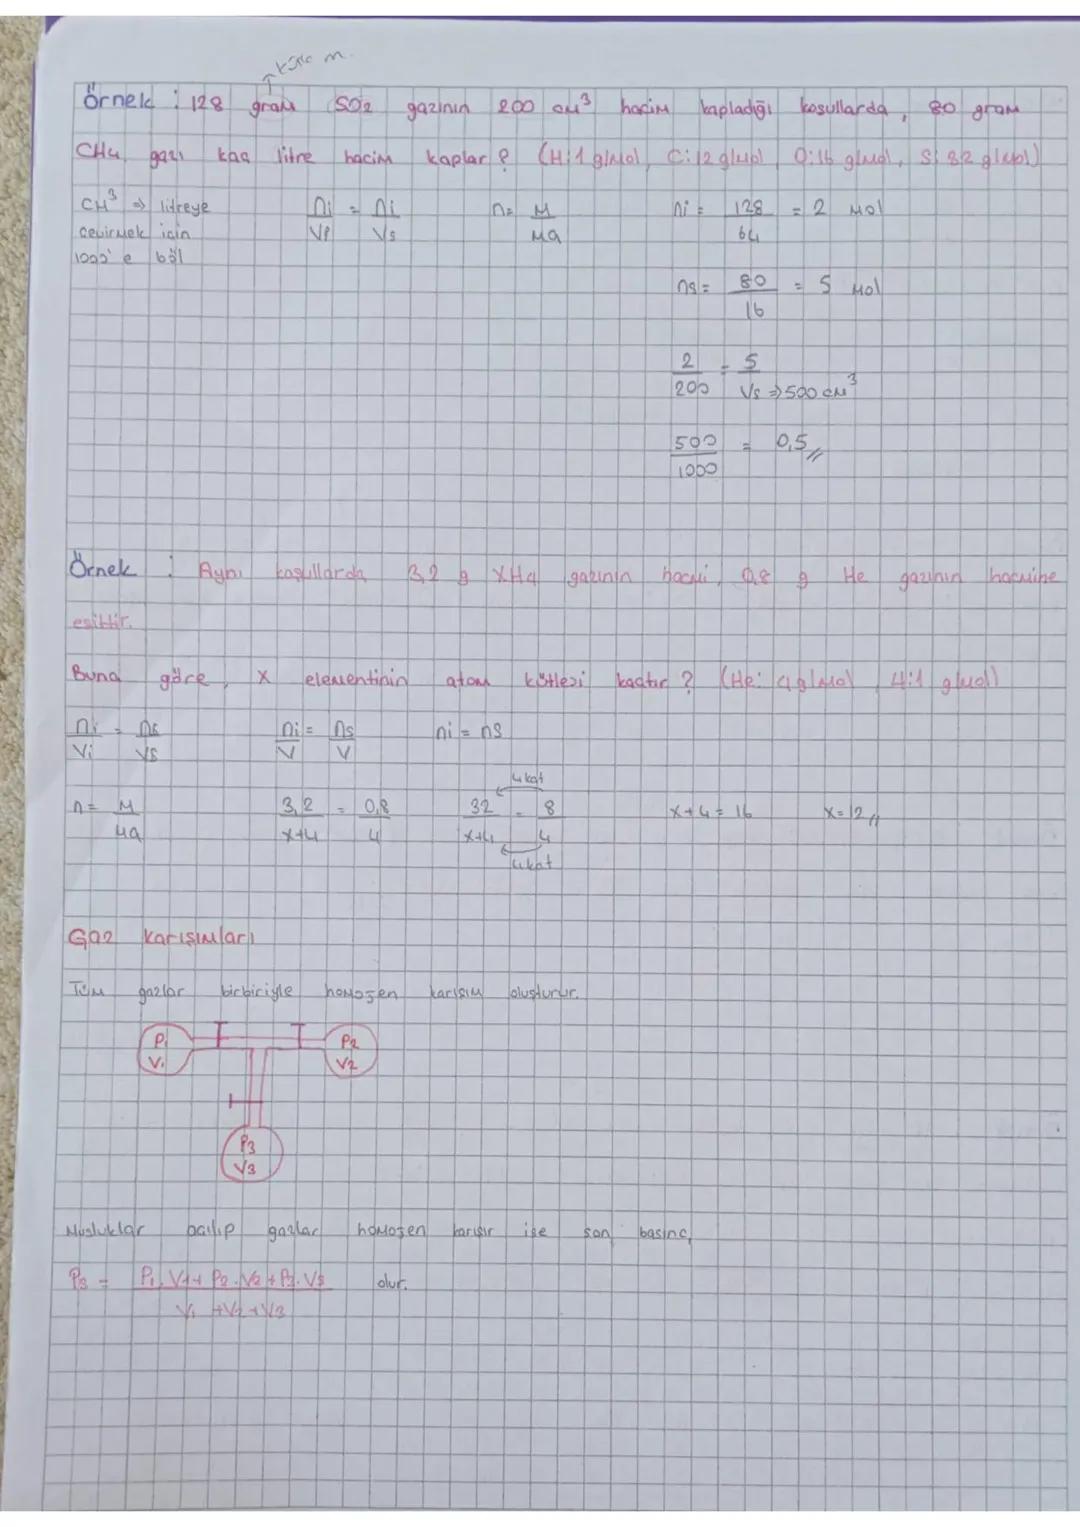 kütle m.
Örnek : 128 gram SO2 gazının 200 cm³ hacim kapladığı koşullarda, 80 gram
CH4 gazı kaç litre hacim kaplar? (H:1 g/mol, C:12 g/mol, O:16 g/mol, S:32 g/mol)
cm³ => litreye ni/Vi = ni/Vs n = m/ma ni = 128/64 = 2 mol
çevirmek için
1000'e böl
ns = 80/16 = 5 mol
2/200 = 5/Vs => 500 cm³
500/1000 = 0,5//
Örnek : Aynı koşullarda 3,2 g XH4 gazının hacmi, 0,8 g He gazının hacmine
eşittir.
Buna göre, X elementinin atom kütlesi kaçtır? (He: 4 g/mol, H:1 g/mol)
ni/Vi = ns/Vs ni/V = ns/V ni = ns
4 kat
n = m/ma 3,2/x+4 = 0,8/4 32/x+4 = 8/4 x+4 = 16 x=12//
4 kat
Gaz Karışımları
Tüm gazlar birbiriyle homojen karışım oluşturur.
P1 V1
P2 V2
P3 V3
Musluklar açılıp gazlar homojen karışır ise son basınç,
Ps = P1.V1+P2.V2+P3.V3 / V1+V2+V3 olur.